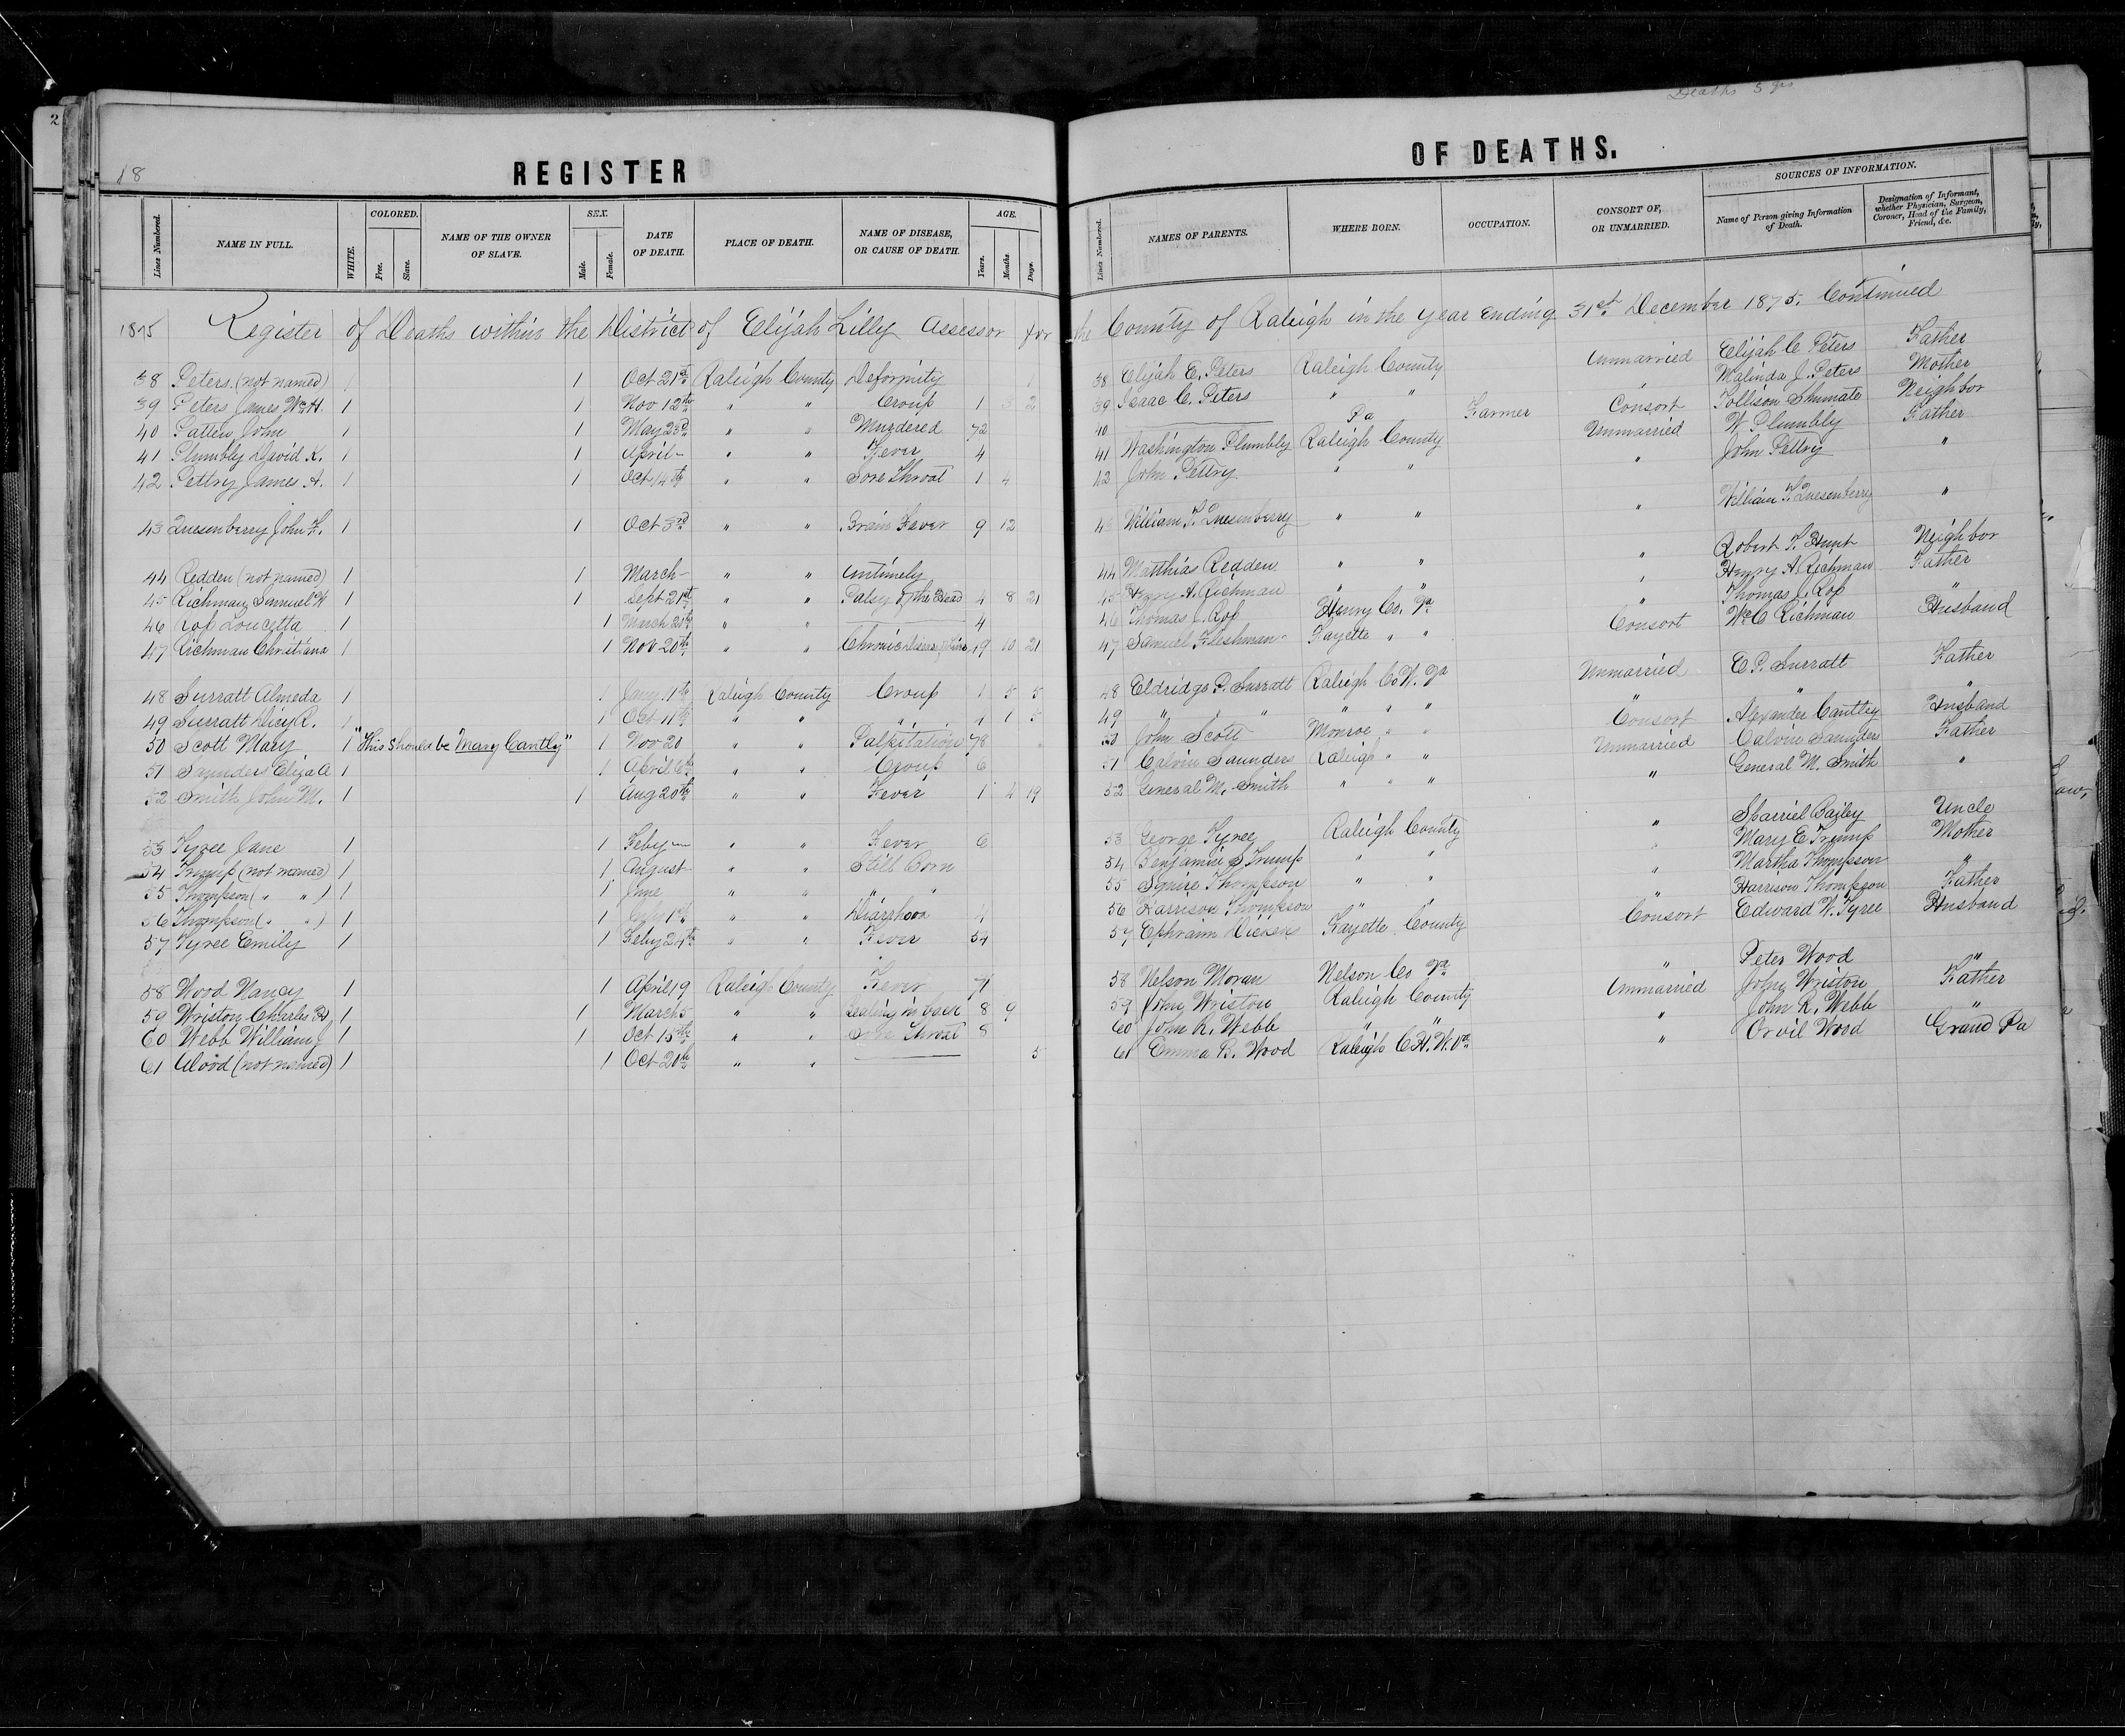 Deaths 3 yrs
2
18
REGISTER OF DEATHS.
Lines Numbered. NAME IN FULL. WHITE. COLORED. Free. Slave. NAME OF THE OWNER OF SLAVE. SEX. Male. Female. DATE OF DEATH. PLACE OF DEATH. NAME OF DISEASE, OR CAUSE OF DEATH. AGE. Years. Months. Days.
Lines Numbered. NAMES OF PARENTS. WHERE BORN. OCCUPATION. CONSORT OF, OR UNMARRIED. SOURCES OF INFORMATION. Name of Person giving Information of Death. Designation of Informant, whether Physician, Surgeon, Coroner, Head of the Family, Friend, &c.
1875 Register of Deaths within the District of Elijah Lilly Assessor for the County of Raleigh in the year ending 31st December 1875. Continued
38 Peters (not named) 1 1 Oct 21st Raleigh County Deformity 1 38 Elijah C. Peters Raleigh County Unmarried Elijah C Peters Father
39 Peters James Wm H. 1 1 Nov 12th " " Croup 1 3 2 39 Isaac C. Peters " " " Malinda J. Peters Mother
40 Patten John 1 1 May 23d " " Murdered 72 40 Pa Farmer Consort Tollison Shumate Neighbor
41 Plumbly David K. 1 1 April " " Fever 4 41 Washington Plumbly Raleigh County Unmarried W Plumbly Father
42 Pettry James A. 1 1 Oct 14th " " Sore Throat 1 4 42 John Pettry " " " John Pettry "
43 Quesenberry John F. 1 1 Oct 3rd " " Brain Fever 9 12 43 William T. Quesenberry " " " William T. Quesenberry "
44 Redden (not named) 1 1 March " " Untimely 44 Matthias Redden " " " Robert T. Hunt Neighbor
45 Richman Samuel W 1 1 Sept 21st " " Palsy of the Head 4 8 21 45 Henry A. Richman " " " Henry A. Richman Father
46 Rop Loucetta 1 1 March " " 4 46 Thomas J. Rop Henry Co. Va " Thomas J. Rop "
47 Richman Christiana 1 1 Nov 20th " " Chronic 19 10 21 47 Samuel Fleshman Fayette " " Consort Wm C Richman Husband
48 Surratt Almeda 1 1 Jany. 1st Raleigh County Croup 1 5 5 48 Eldridge P. Surratt Raleigh Co W. Va Unmarried E. P. Surratt Father
49 Surratt Dicy R. 1 1 Oct 11th " " " 1 49 " " " " " " " " "
50 Scott Mary 1 "This should be Mary Cantley" 1 Nov 20 " " Palpitation 78 50 John Scott Monroe " " Consort Alexander Cantley Husband
51 Saunders Eliza A 1 1 April 6th " " Croup 6 51 Calvin Saunders Raleigh " " Unmarried Calvin Saunders Father
52 Smith John M. 1 1 Aug 20th " " Fever 1 4 19 52 General M. Smith " " " " General M. Smith "
53 Tyree Jane 1 1 Feby " " Fever 6 53 George Tyree Raleigh County " Sparriel Bailey Uncle
54 Trump (not named) 1 1 August " " Still Born 54 Benjamin S Trump " " " Mary E Trump Mother
55 Thompson ( " " ) 1 1 June " " " " 55 Squire Thompson " " " Martha Thompson "
56 Thompson ( " " ) 1 1 July 1st " " Diarrhoea 4 56 Harrison Thompson " " " Harrison Thompson Father
57 Tyree Emily 1 1 Feby 24th " " Fever 54 57 Ephraim Dickens Fayette County Consort Edward W. Tyree Husband
58 Wood Nancy 1 1 April 19 Raleigh County Fever 71 58 Nelson Moran Nelson Co Va " Peter Wood "
59 Wriston Charles 1 1 March 5 " " 8 9 59 John Wriston Raleigh County Unmarried John Wriston Father
60 Webb William J 1 1 Oct 15th " " Sore Throat 8 60 John R. Webb " " " John R. Webb "
61 Wood (not named) 1 1 Oct 20th " " 5 61 Emma B. Wood Raleigh C.H. W. Va " Orvil Wood Grand Pa